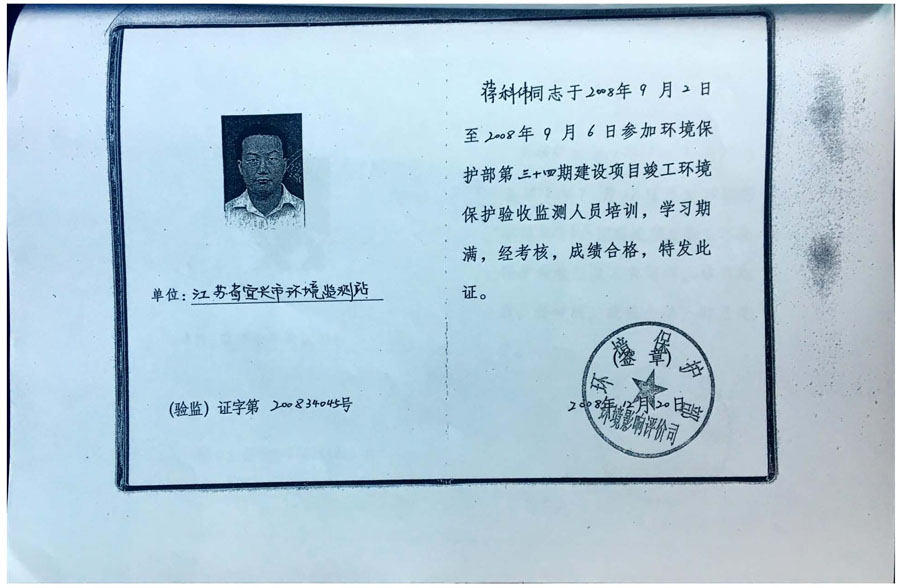 单位：江苏省宜兴市环境监测站
（验监）证字第 200834045号
蒋科伟同志于2008年9月2日
至2008年9月6日参加环境保
护部第三十四期建设项目竣工环境
保护验收监测人员培训，学习期
满，经考核，成绩合格，特发此
证。
环境保护部
（签章）
2008年12月20日
环境影响评价司